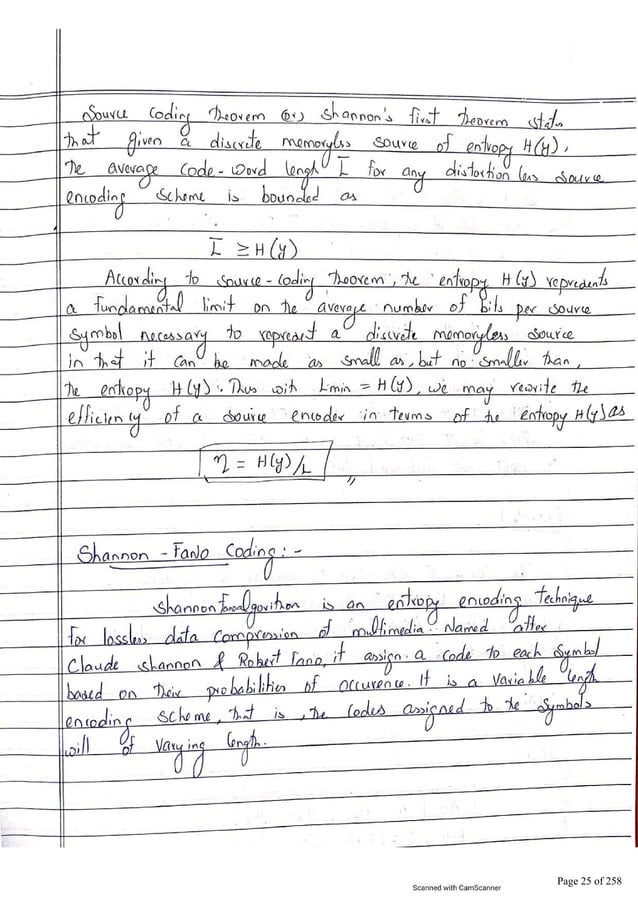 Source Coding Theorem (or) Shannon's first Theorem states
that given a discrete memoryless source of entropy H(y),
The average code-word lengh L̅ for any distortion less source
encoding scheme is bounded as
L̅ ≥ H(y)
According to source-coding Theorem, the entropy H(y) represents
a fundamental limit on the average number of bits per source
symbol necessary to represent a discrete memoryless source
in that it can be made as small as, but no smaller than,
the entropy H(y). Thus with Lmin = H(y), we may rewrite the
efficiency of a source encoder in terms of the entropy H(y) as
η = H(y)/L
Shannon - Fano Coding:-
Shannon Fano algorithm is an entropy encoding Technique
for lossless data compression of multimedia. Named after
Claude Shannon & Robert Fano, it assign a code to each symbol
based on their probabilities of occurence. It is a Variable length
encoding scheme, that is, the codes assigned to the symbols
will of varying length.
Scanned with CamScanner
Page 25 of 258